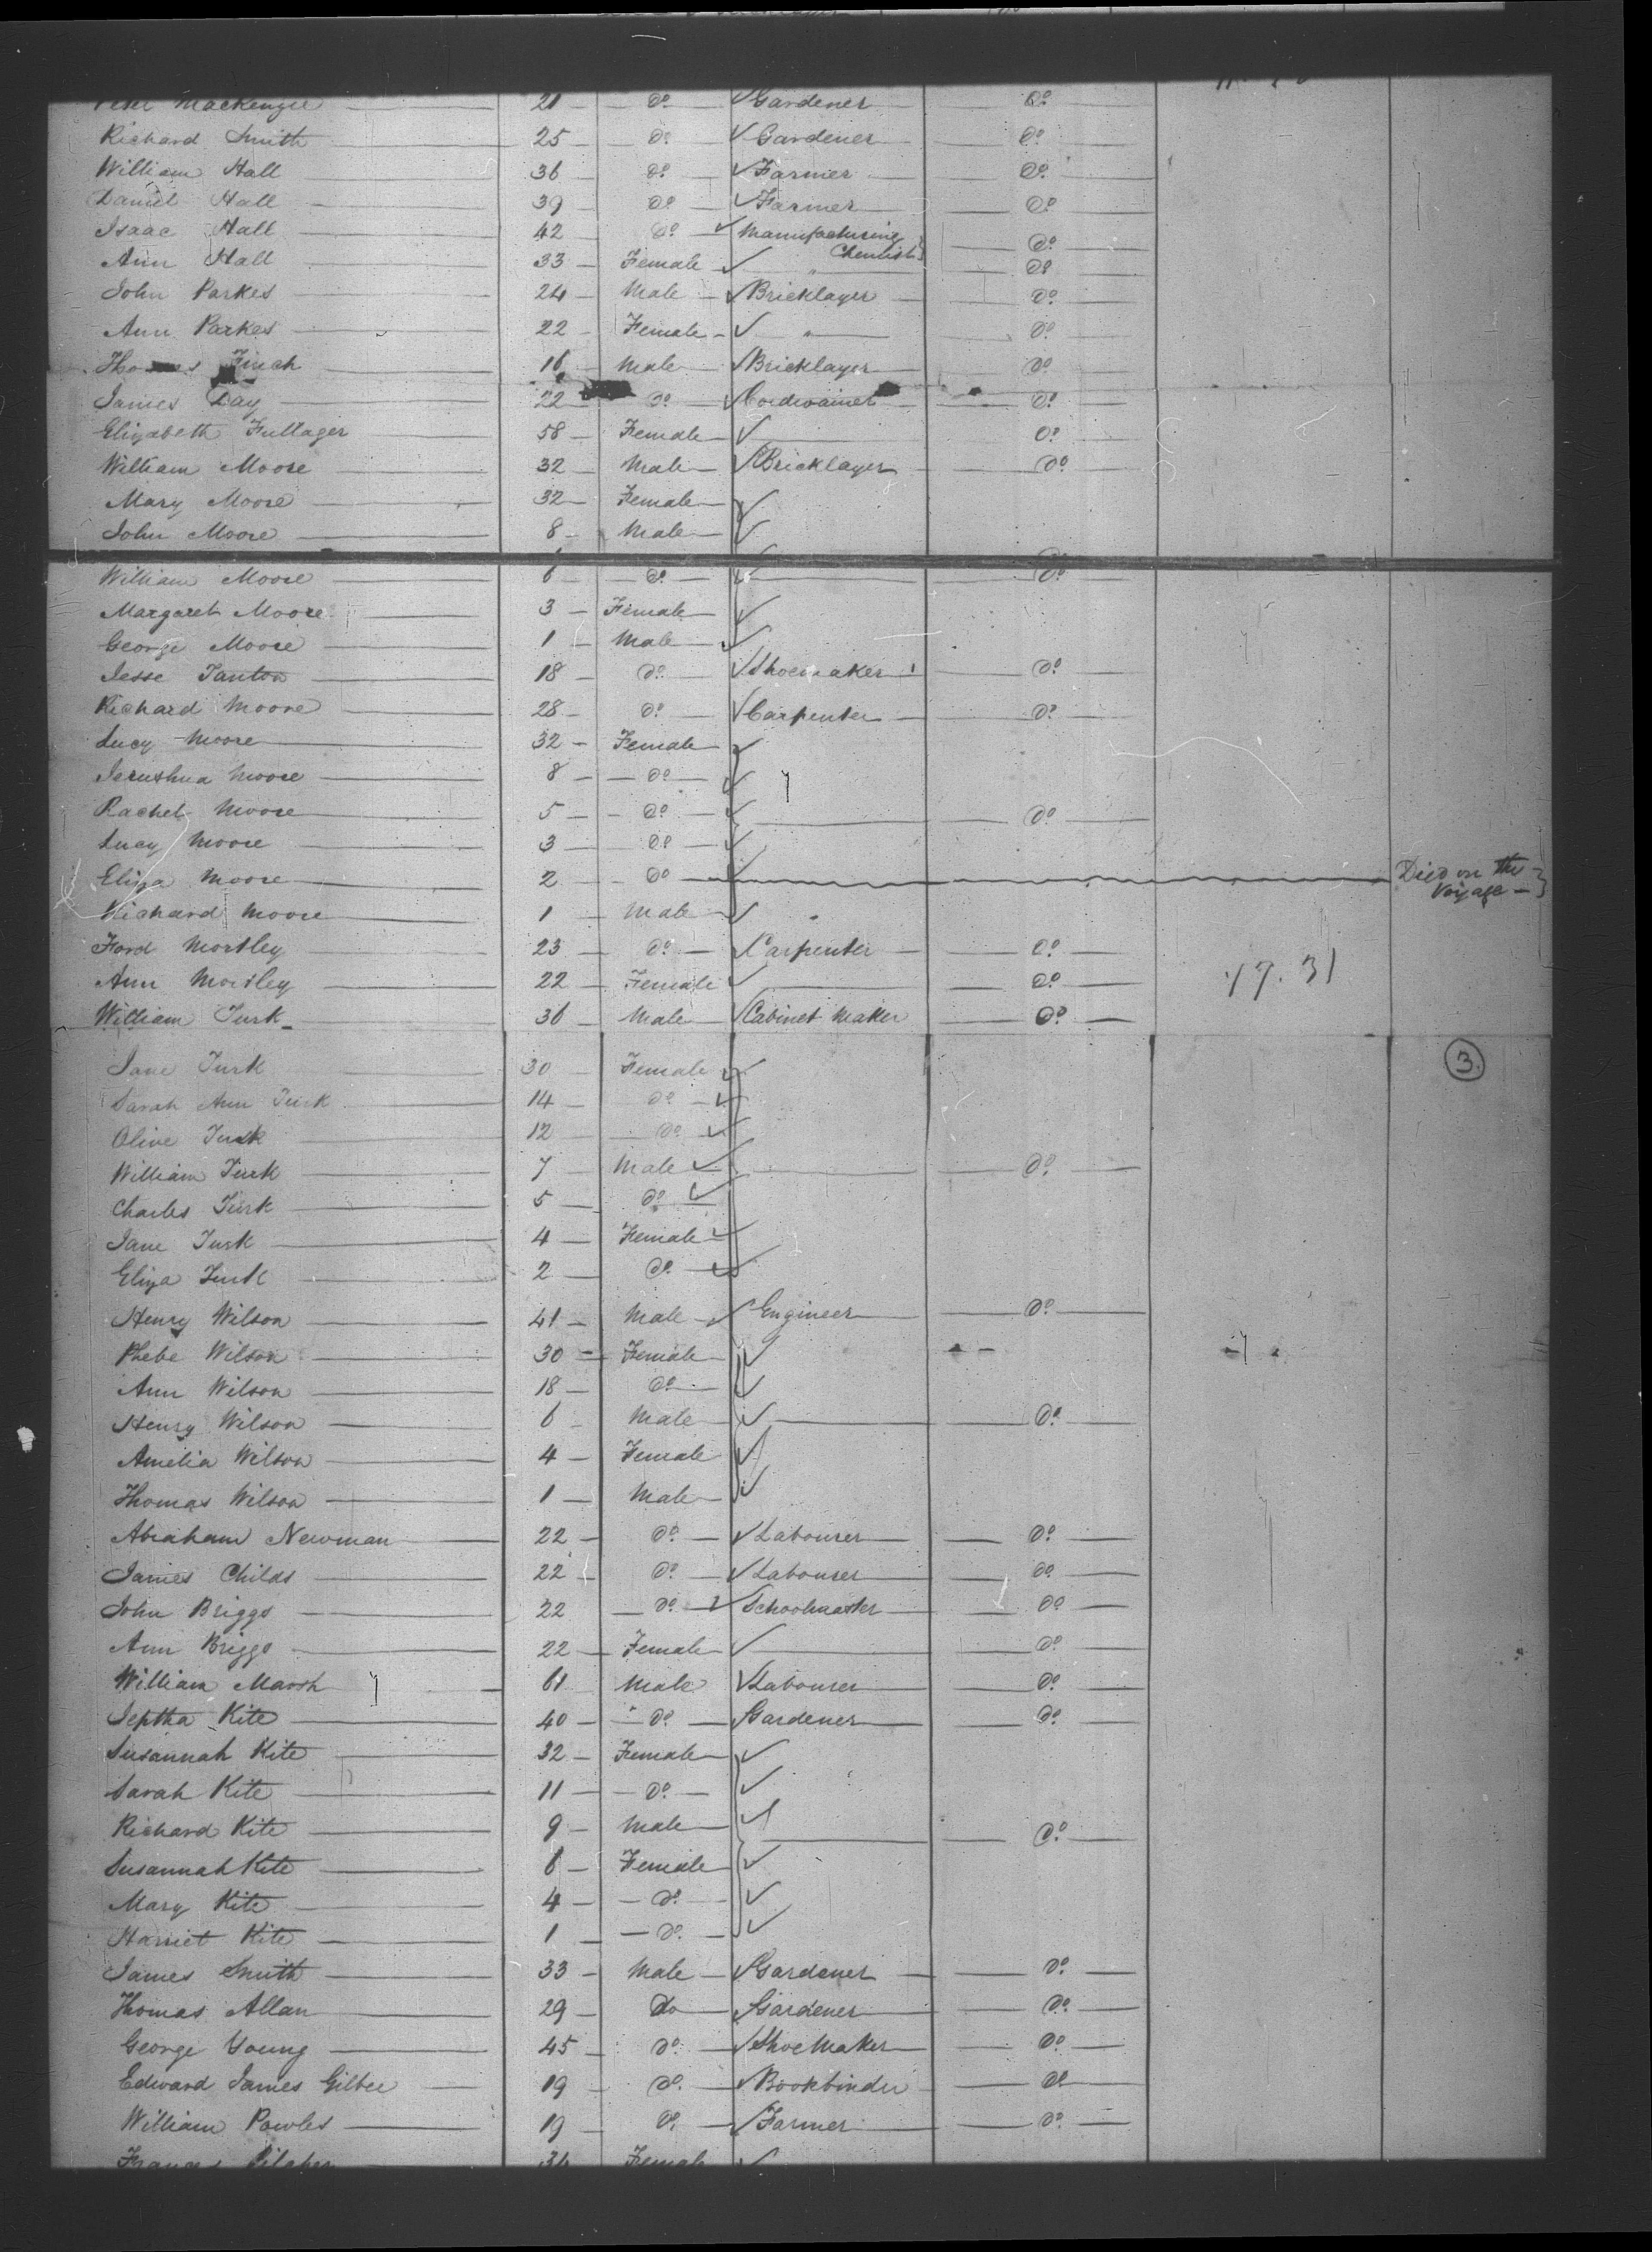 Peter Mackenzie 21 do Gardener do
Richard Smith 25 do Gardener do
William Hall 36 do Farmer do
Daniel Hall 39 do Farmer do
Isaac Hall 42 do Manufacturing Chemist do
Ann Hall 33 Female " do
John Parkes 24 Male Bricklayer do
Ann Parkes 22 Female " do
Thomas Finch 16 Male Bricklayer do
James Day 22 do Cordwainer do
Elizabeth Fullager 58 Female do
William Moore 32 Male Bricklayer do
Mary Moore 32 Female
John Moore 8 Male
William Moore 6 do do
Margaret Moore 3 Female
George Moore 1 Male
Jesse Tanton 18 do Shoemaker do
Richard Moore 28 do Carpenter do
Lucy Moore 32 Female
Jerushua Moore 8 do
Rachel Moore 5 do do
Lucy Moore 3 do
Eliza Moore 2 do Died on the Voyage
Richard Moore 1 Male
Ford Mortley 23 do Carpenter do
Ann Mortley 22 Female do 47.31
William Turk 36 Male Cabinet Maker do
3.
Jane Turk 30 Female
Sarah Ann Turk 14 do
Olive Turk 12 do
William Turk 7 Male do
Charles Turk 5 do
Jane Turk 4 Female
Eliza Turk 2 do
Henry Wilson 41 Male Engineer do
Phebe Wilson 30 Female
Ann Wilson 18 do
Henry Wilson 6 Male do
Amelia Wilson 4 Female
Thomas Wilson 1 Male
Abraham Newman 22 do Labourer do
James Childs 22 do Labourer do
John Briggs 22 do Schoolmaster do
Ann Briggs 22 Female do
William Marsh 61 Male Labourer do
Jeptha Kite 40 do Gardener do
Susannah Kite 32 Female
Sarah Kite 11 do
Richard Kite 9 Male do
Susannah Kite 6 Female
Mary Kite 4 do
Harriet Kite 1 do
James Smith 33 Male Gardener do
Thomas Allan 29 do Gardener do
George Young 45 do Shoe Maker do
Edward James Gilbee 19 do Bookbinder do
William Powles 19 do Farmer do
Female